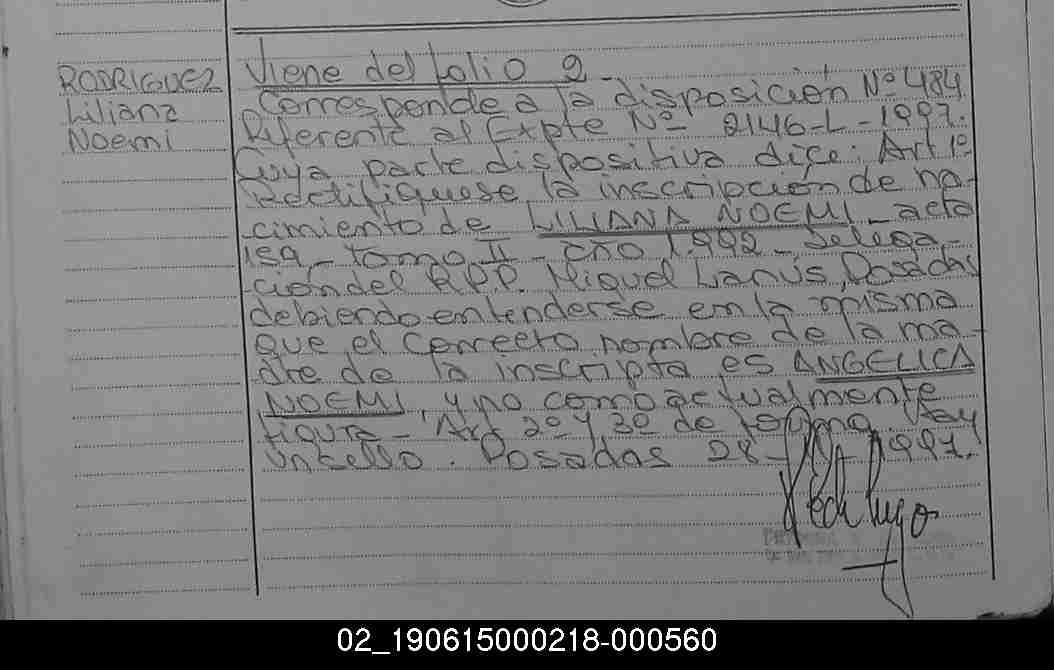 RODRIGUEZ
Liliana
Noemi
Viene del folio 2-
Corresponde a la disposición Nº 484
Referente al Expte Nº 2146-L-1997.
Cuya parte dispositiva dice: Art 1º
Rectifiquese la inscripción de na-
cimiento de LILIANA NOEMI - acta
159 - tomo II - año 1992 - Delega-
ción del R.P.P. Miguel Lanús, Posadas
debiendo entenderse en la misma
que el correcto nombre de la ma-
dre de la inscripta es ANGELICA
NOEMI, y no como actualmente
figura - Art 2º y 3º de forma. Hay
un sello. Posadas 28- 1997.
02_190615000218-000560